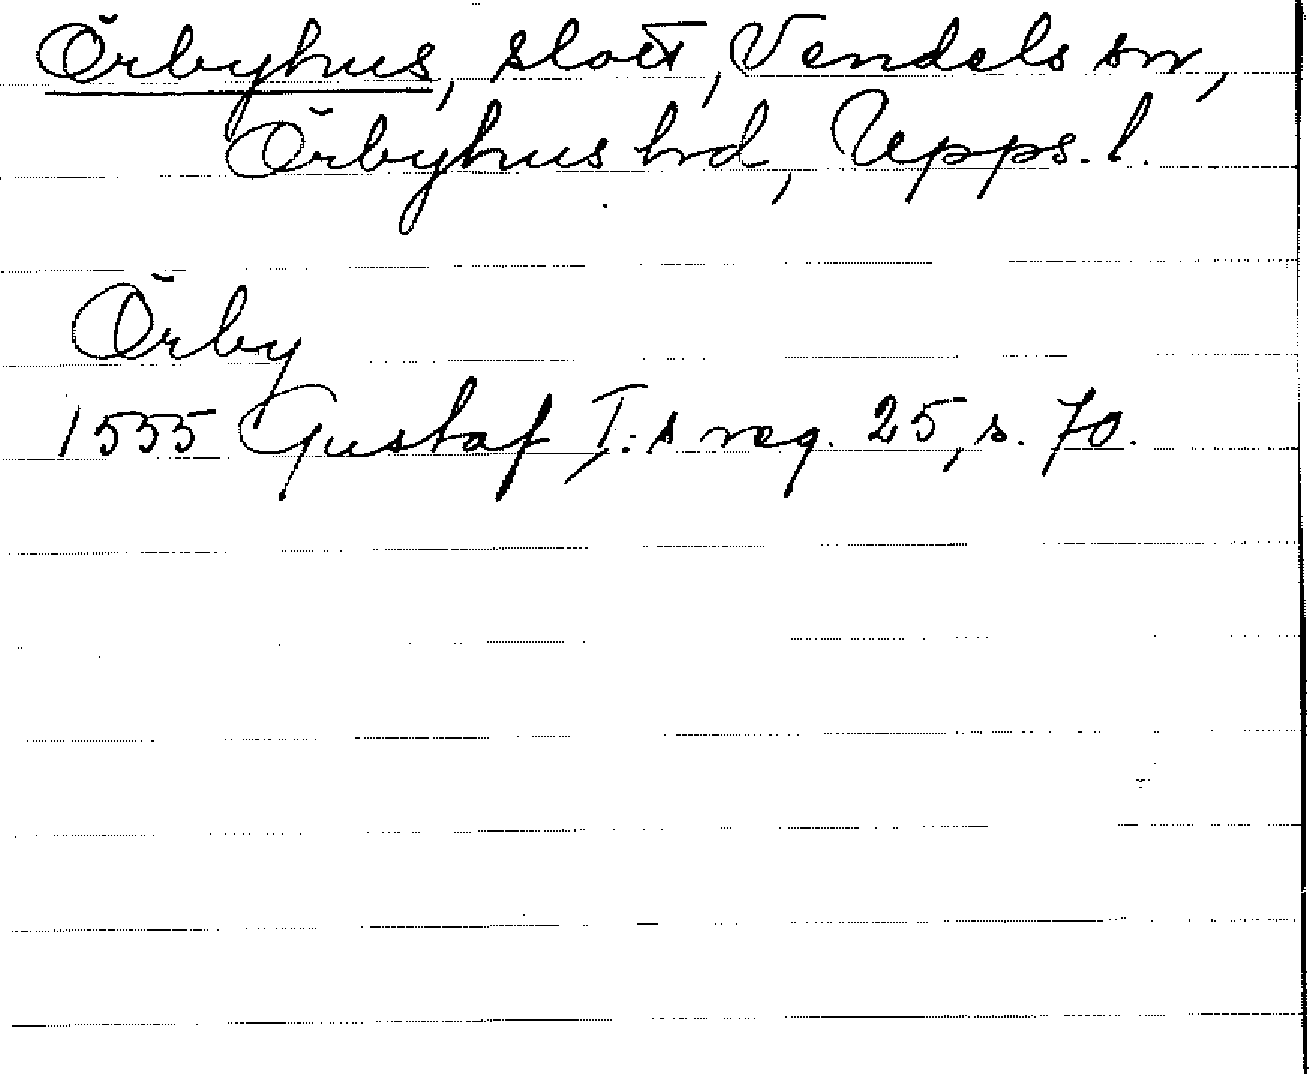 Örbyhus, slott, Vendels sn,
Örbyhus hd, Upps. l.
Örby
1555 Gustaf I:s reg. 25, s. 70.